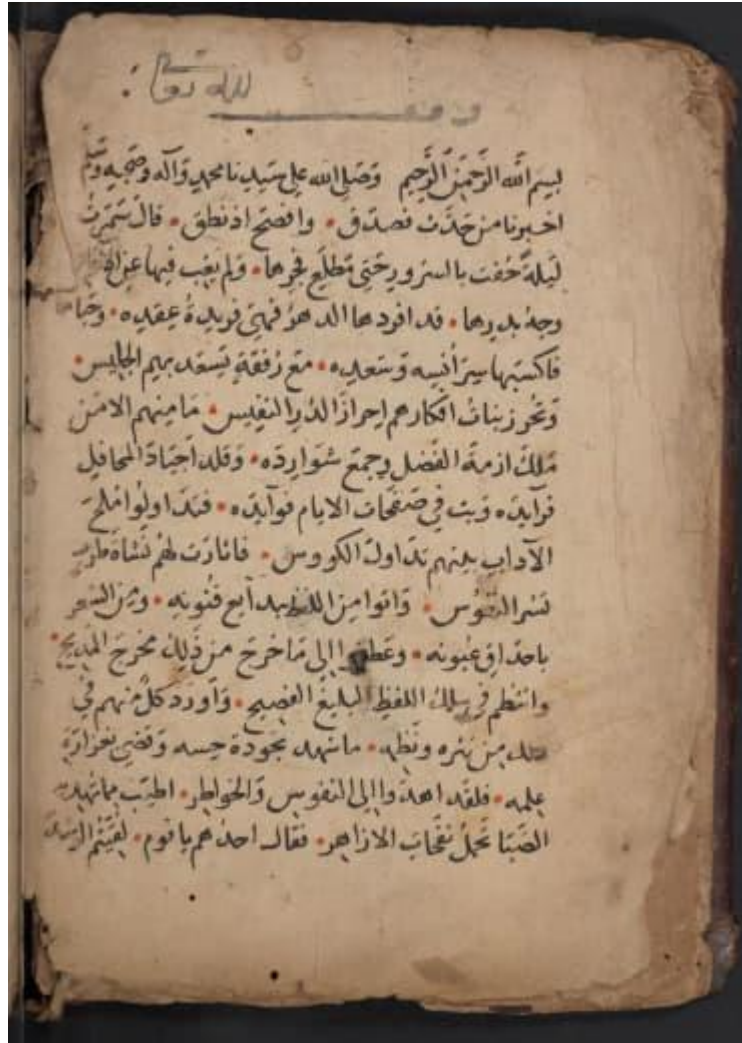 وقف
لله تعالى
بسم الله الرَّحمٰنِ الرَّحِيم وَصَلى الله على سَيدنا محمدٍ وَآله وصَحبه وَسَلم
اخبرنا من حَدَّث فصدَق • وافصَح اذ نطق • قال سَمَرْتُ
لَيلةً حُفت بالسرور حَتى مَطلَع فجرها • وَلم يغِب فيها عن
وجهُ بدرها • قد افردها الدهرُ فهيَ فريدةُ عِقده •
فاكسَبها سِرَ أُنسِه وَسَعدِه • مَع رُفقةٍ يَسعَد بهِم الجليس •
وَتحُرز بناتُ افكارهم احِرازَ الدُرِ النَفِيس • مَا مِنهم الا مَن
مَلكَ ازمةَ الفَضل وجمعَ شَوارِدَه • وَقلد اَجيَادَ المحَافِلِ
فرآيدَه وَبث في صَفحَات الايام فوَآيدَه • فتَدَاوَلُوا مُلَحَ
الآدابِ بينهم تدَاوُلَ الكوُوس • فاثارَت لهُم نَشاةَ
نَشر النفُوس • وَاتوا مِنَ اللفظ ببدَآيع فنُونِه • وَمِن السِحر
باحدَاقِ عيُونه • وَعطفوا الى مَا خرجَ من ذَلِك مَخرجَ المَديح •
وانتظم في سِلك اللفظِ البَليغ الفصِيح • وَاَورَد كلٌ منهم في
ذلك مِن نثره وَنَظمِه • مَا شهدَ بجَودة حِسه وَقضى بغَزارَةِ
عِلمه • فلقد اهدَوا الى النفوسِ وَالخَواطِر • اطيَب مما تهديه
الصَّبَا تحمِلُ نَفحَاتِ الازاهر • فقال احدُهم يا قوم • لقيتُم